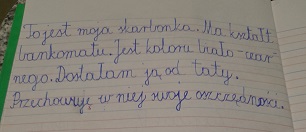 To jest moja skarbonka. Ma kształt
bankomatu. Jest koloru biało-czar
nego. Dostałam ją od taty.
Przechowuję w niej swoje oszczędności.